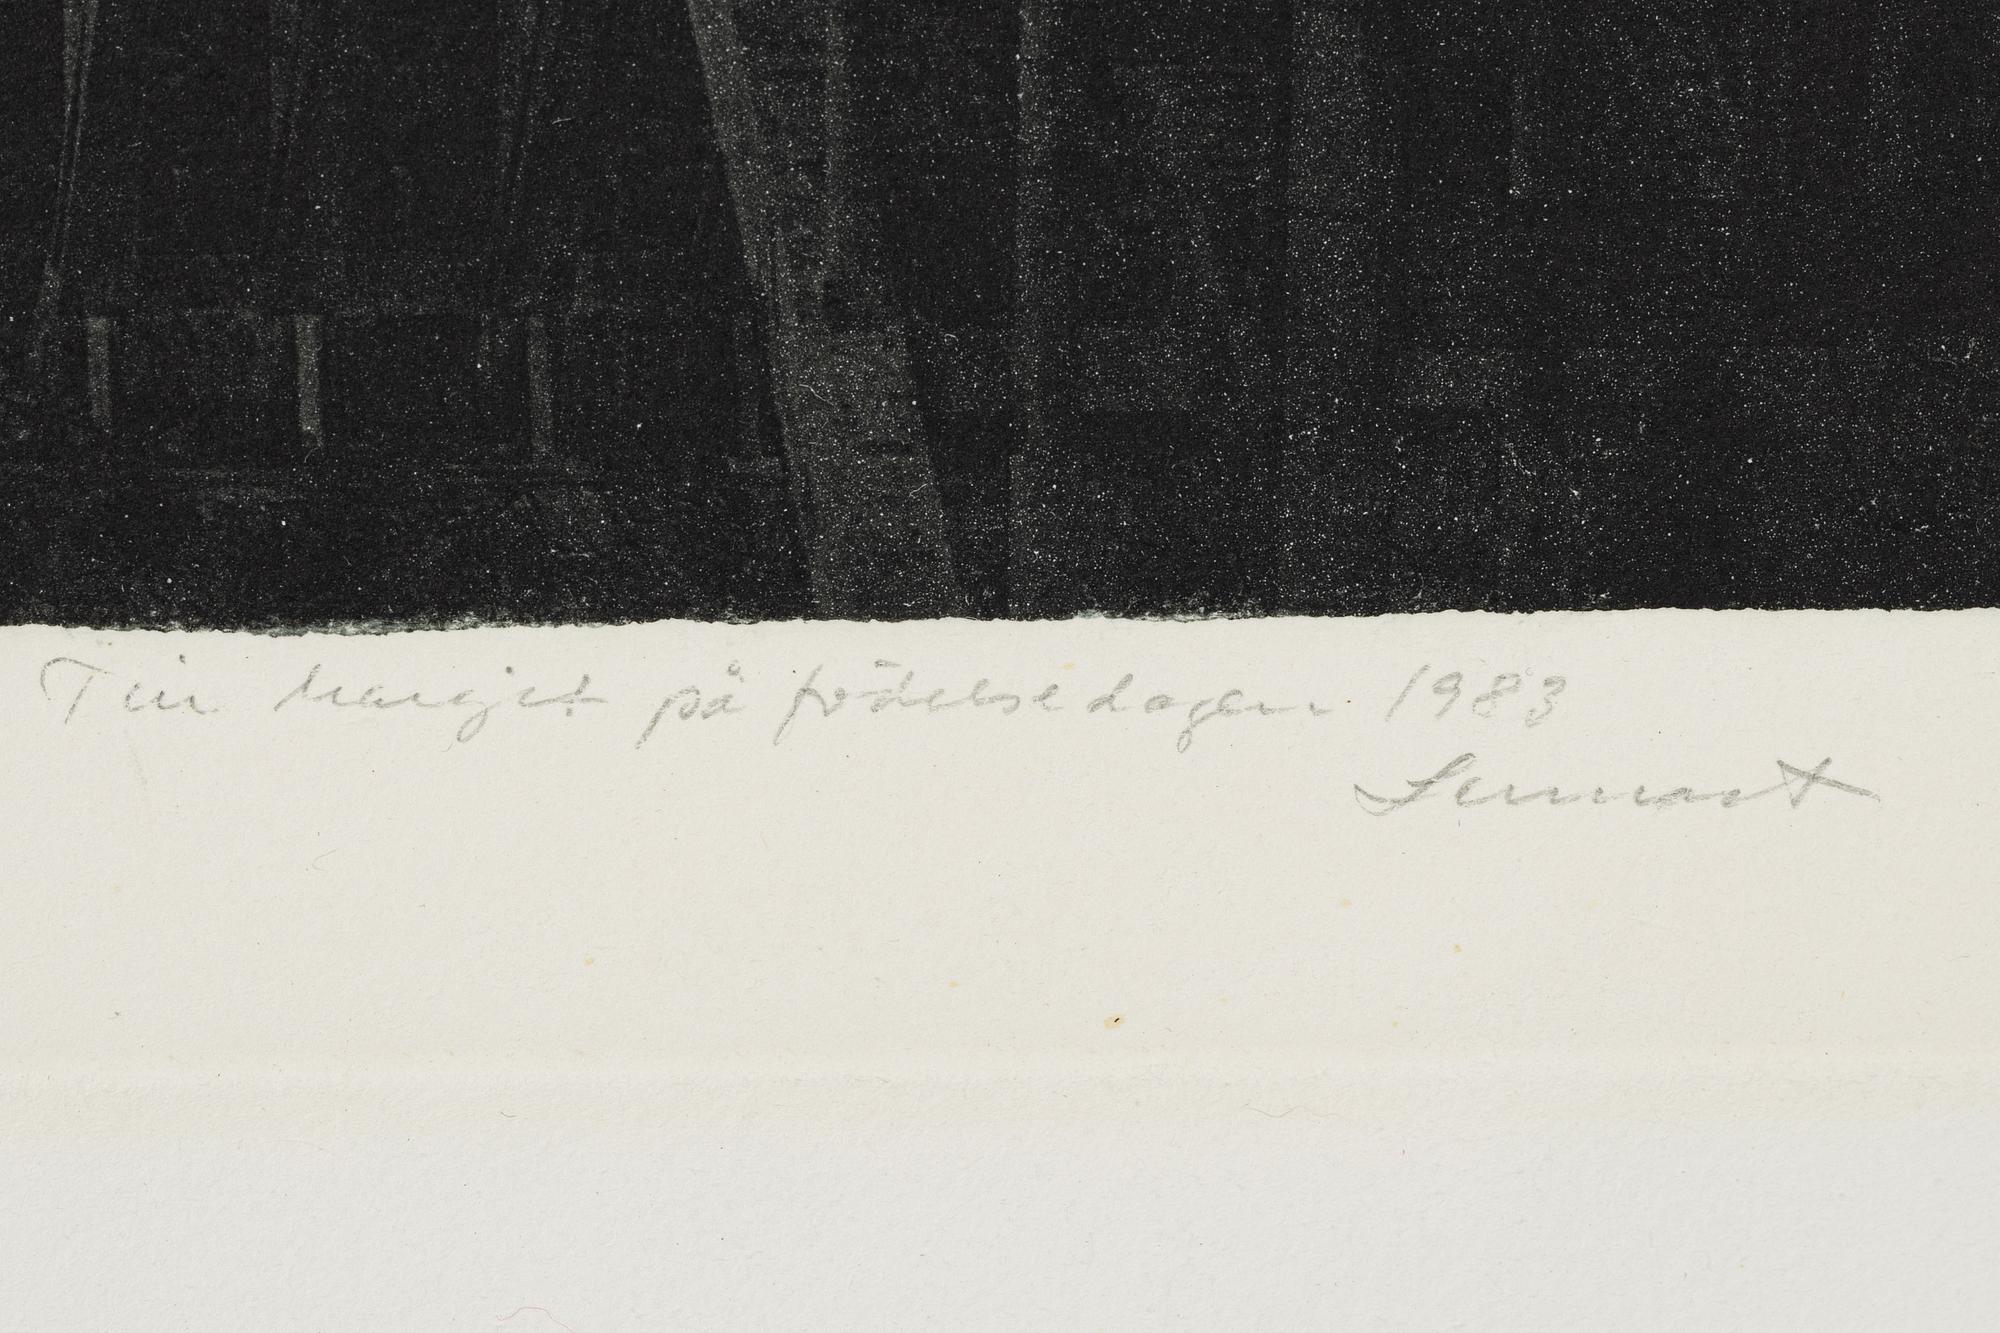 Till Margit på födelsedagen 1983
Lennart